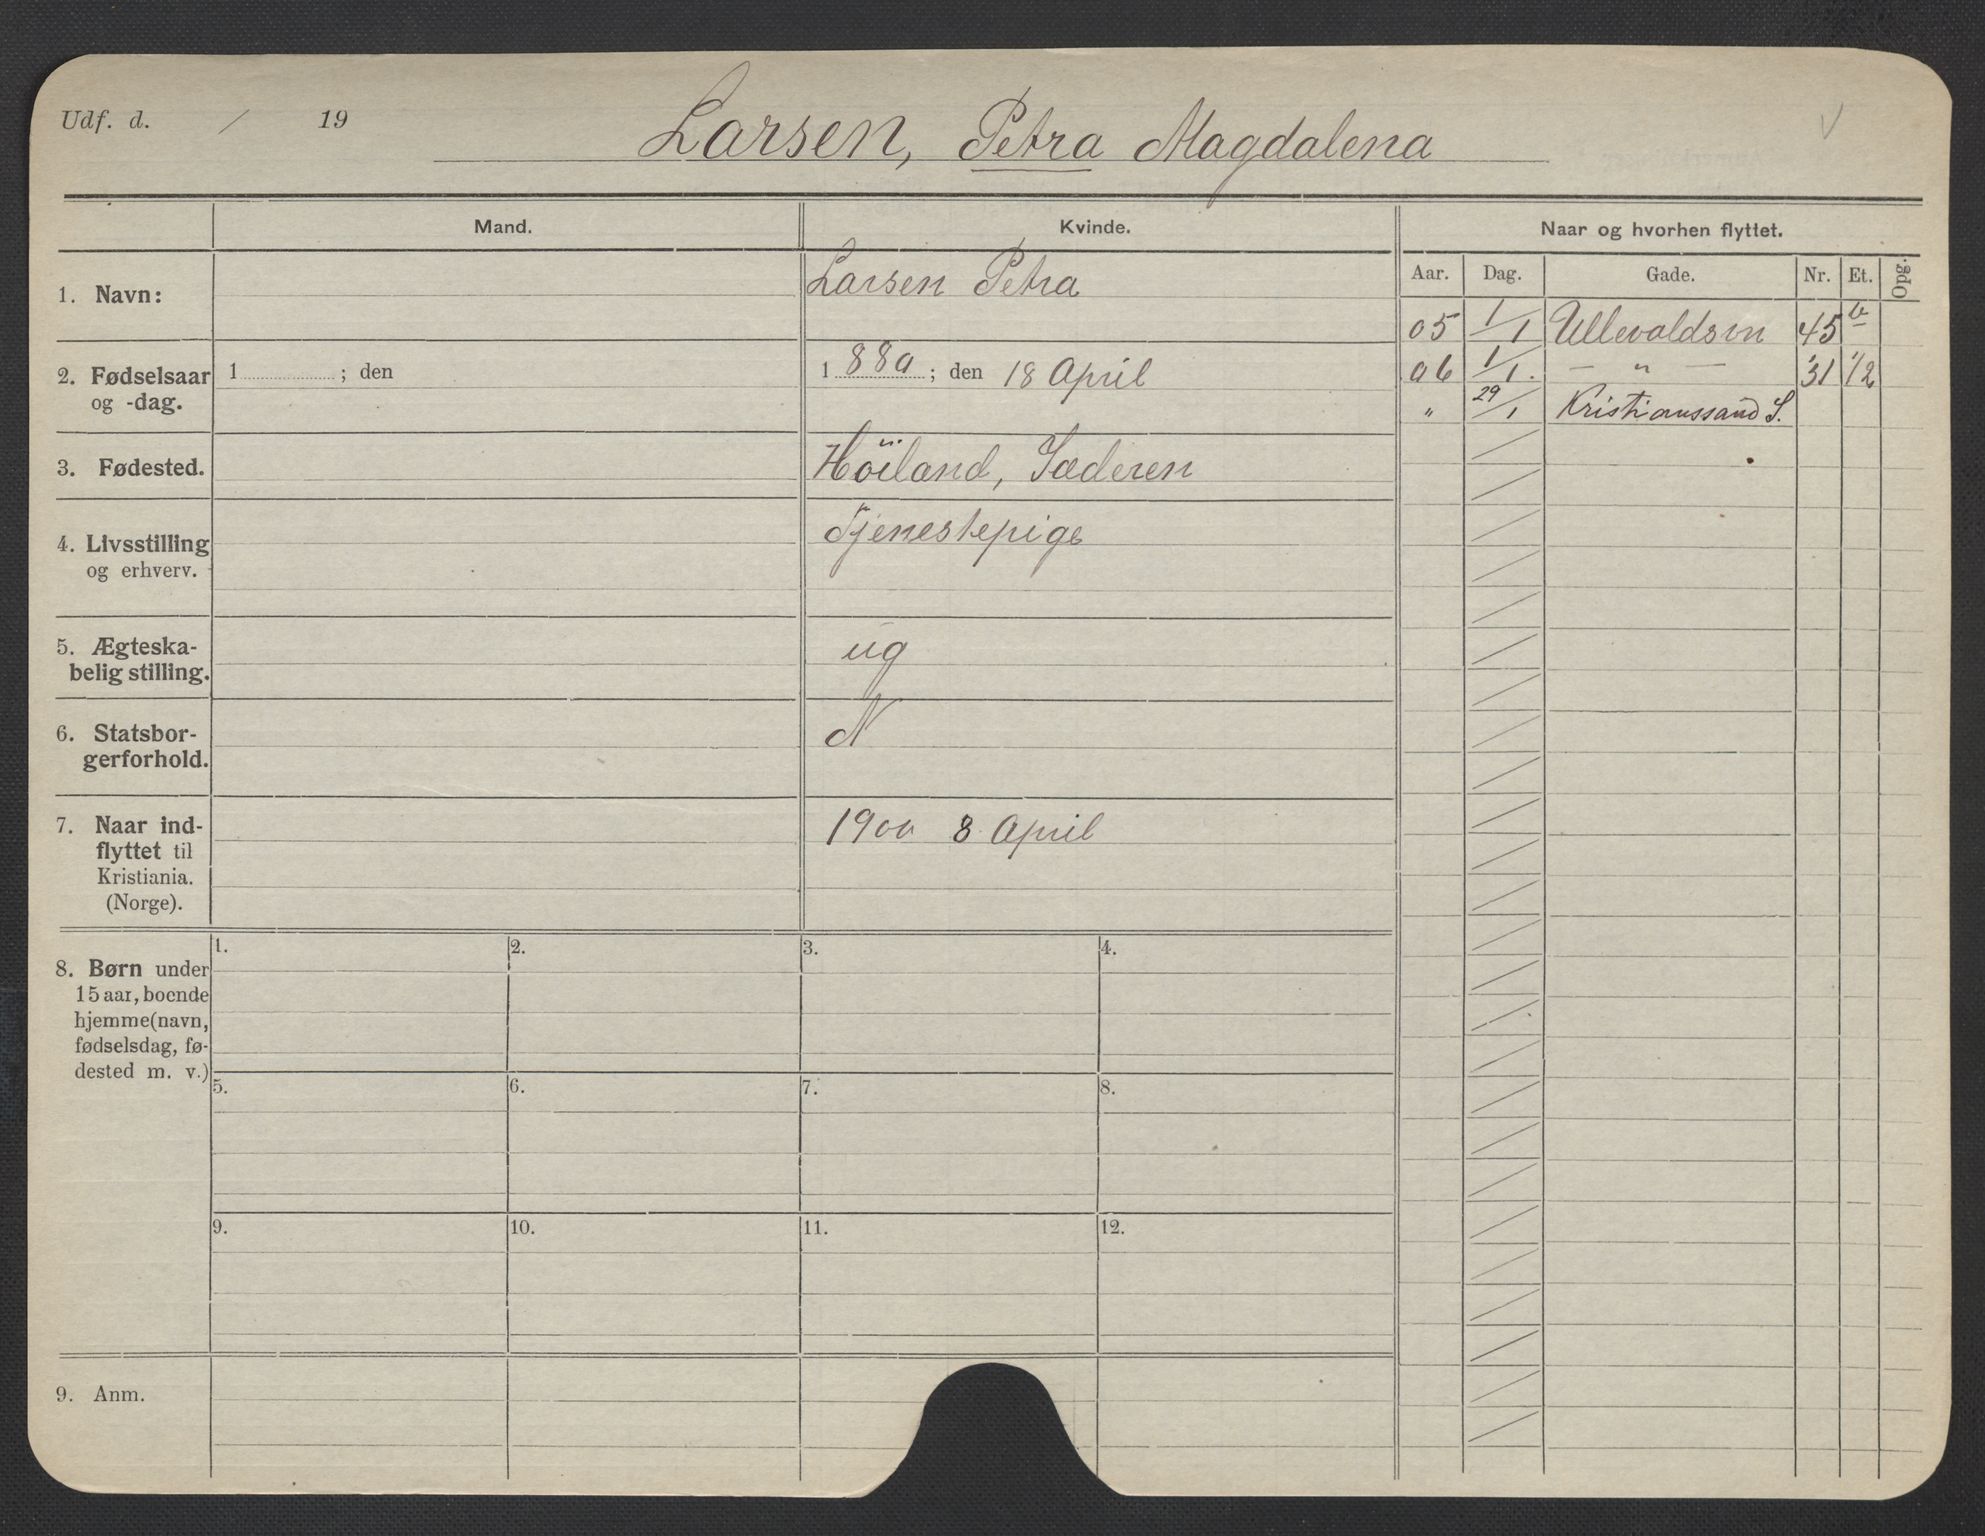 Udf. d. / 19
Larsen, Petra Magdalena
Mand.
Kvinde.
Naar og hvorhen flyttet.
Aar. Dag. Gade. Nr. Et. Opg.
1. Navn:
Larsen Petra
05 1/1 Ullevoldsvn 45
2. Fødselsaar
og -dag.
1 ; den
1880; den 18 April
06 1/1. — " — 31 1/2
" 29/1 Kristianssand S.
3. Fødested.
Höiland, Jæderen
4. Livsstilling
og erhverv.
Tjenestepige
5. Ægteska-
belig stilling.
ug
6. Statsbor-
gerforhold.
N
7. Naar ind-
flyttet til
Kristiania.
(Norge).
1900 8 April
8. Børn under
15 aar, boende
hjemme (navn,
fødselsdag, fø-
dested m. v.)
1. 2. 3. 4.
5. 6. 7. 8.
9. 10. 11. 12.
9. Anm.